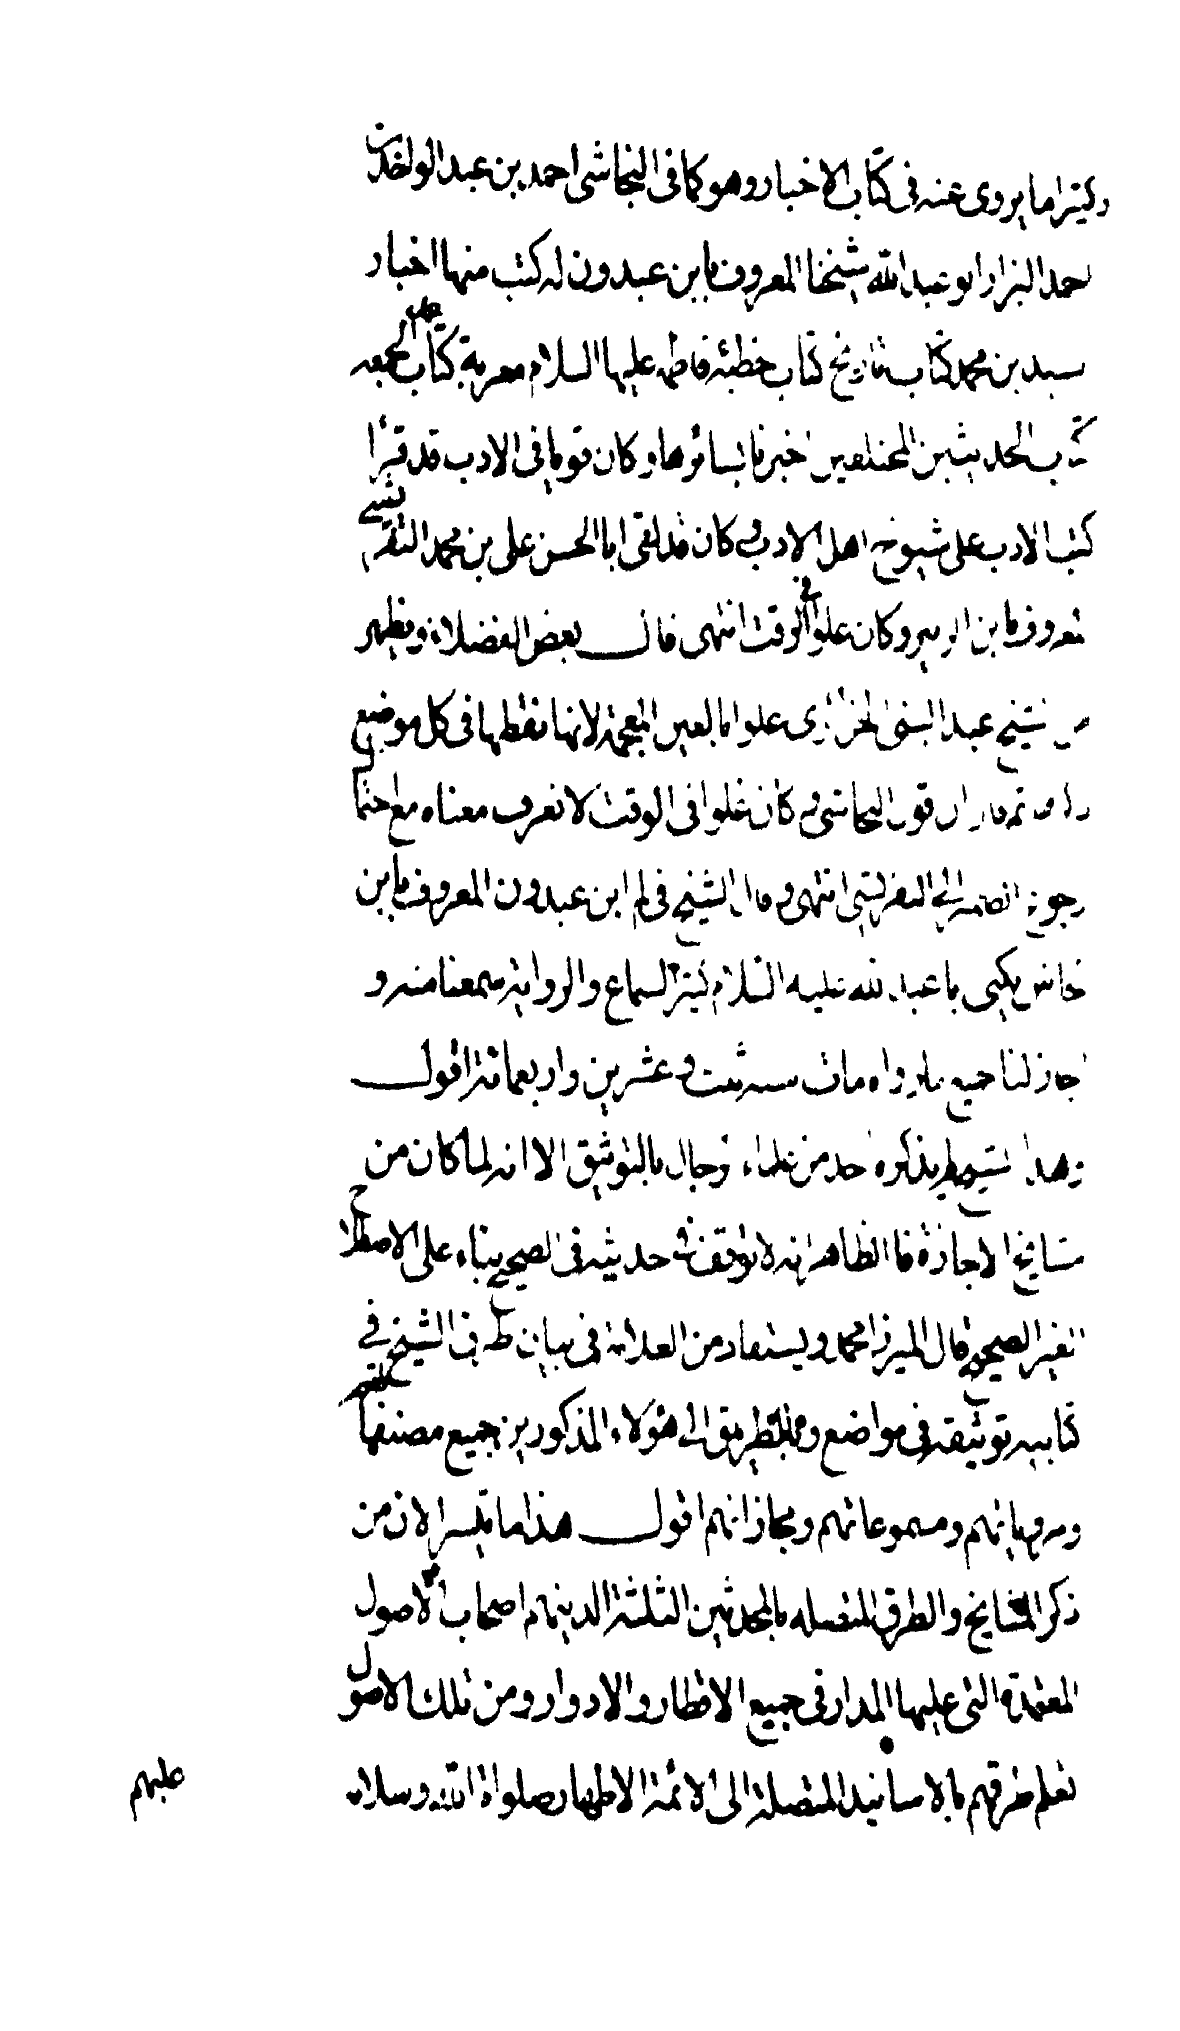 وكثيرا ما يروى عنه فى كتاب الاخبار وهو كما فى النجاشى احمد بن عبد الواحد بن
احمد البزاز ابو عبد الله شيخنا المعروف بابن عبدون له كتب منها اخبار
سيد بن محمد كتاب تاريخ كتاب خطبة فاطمه عليها السلام معربة كتاب عمل الجمعه
كتاب الحديثين المختلفين اخبرنا بسائرها وكان قويا فى الادب قد قرأ
كتب الادب على شيوخ اهل الادب وكان قد لقى ابا الحسن على بن محمد القرشى
المعروف بابن الزبير وكان علوا فى الوقت انتهى قال بعض الفضلاء ويظهر
من الشيخ عبد النبى الجزائرى غلوا بالغين المعجمة لانها نقطها فى كل موضع
ثم قال ان قول النجاشى وكان غلوا فى الوقت لا نعرف معناه مع احتمال
رجوع الضمير الى القرشى انتهى وقال الشيخ فى لم ابن عبدون المعروف بابن
حاشر يكنى با عبد الله عليه السلام كثير السماع والرواية سمعنا منه و
اجاز لنا جميع ما رواه مات سنه ثلث وعشرين واربعمائة اقول
وهذا الشيخ لم يذكره احد من علماء الرجال بالتوثيق الا انه لما كان من
مشايخ الاجازة فالظاهر انه لا توقف فى حديثه فى الصحيح بناء على الاصطلاح
الغير الصحيح قال الميرزا محمد ويستفاد من العلامة فى بيان طريق الشيخ فى
كتابيه توثيقه فى مواضع وبالطريق الى هؤلاء المذكورين جميع مصنفاتهم
ومروياتهم ومسموعاتهم ومجازاتهم اقول هذا ما تيسر الان من
ذكر المشايخ والطرق المتصله بالمحدثين الثلثة الذينهم اصحاب الاصول
المعتمدة التى عليها المدار فى جميع الاقطار والادوار ومن تلك الاصول
تعلم طرقهم بالاسانيد المتصلة الى الائمة الاطهار صلوات الله وسلامه
عليهم